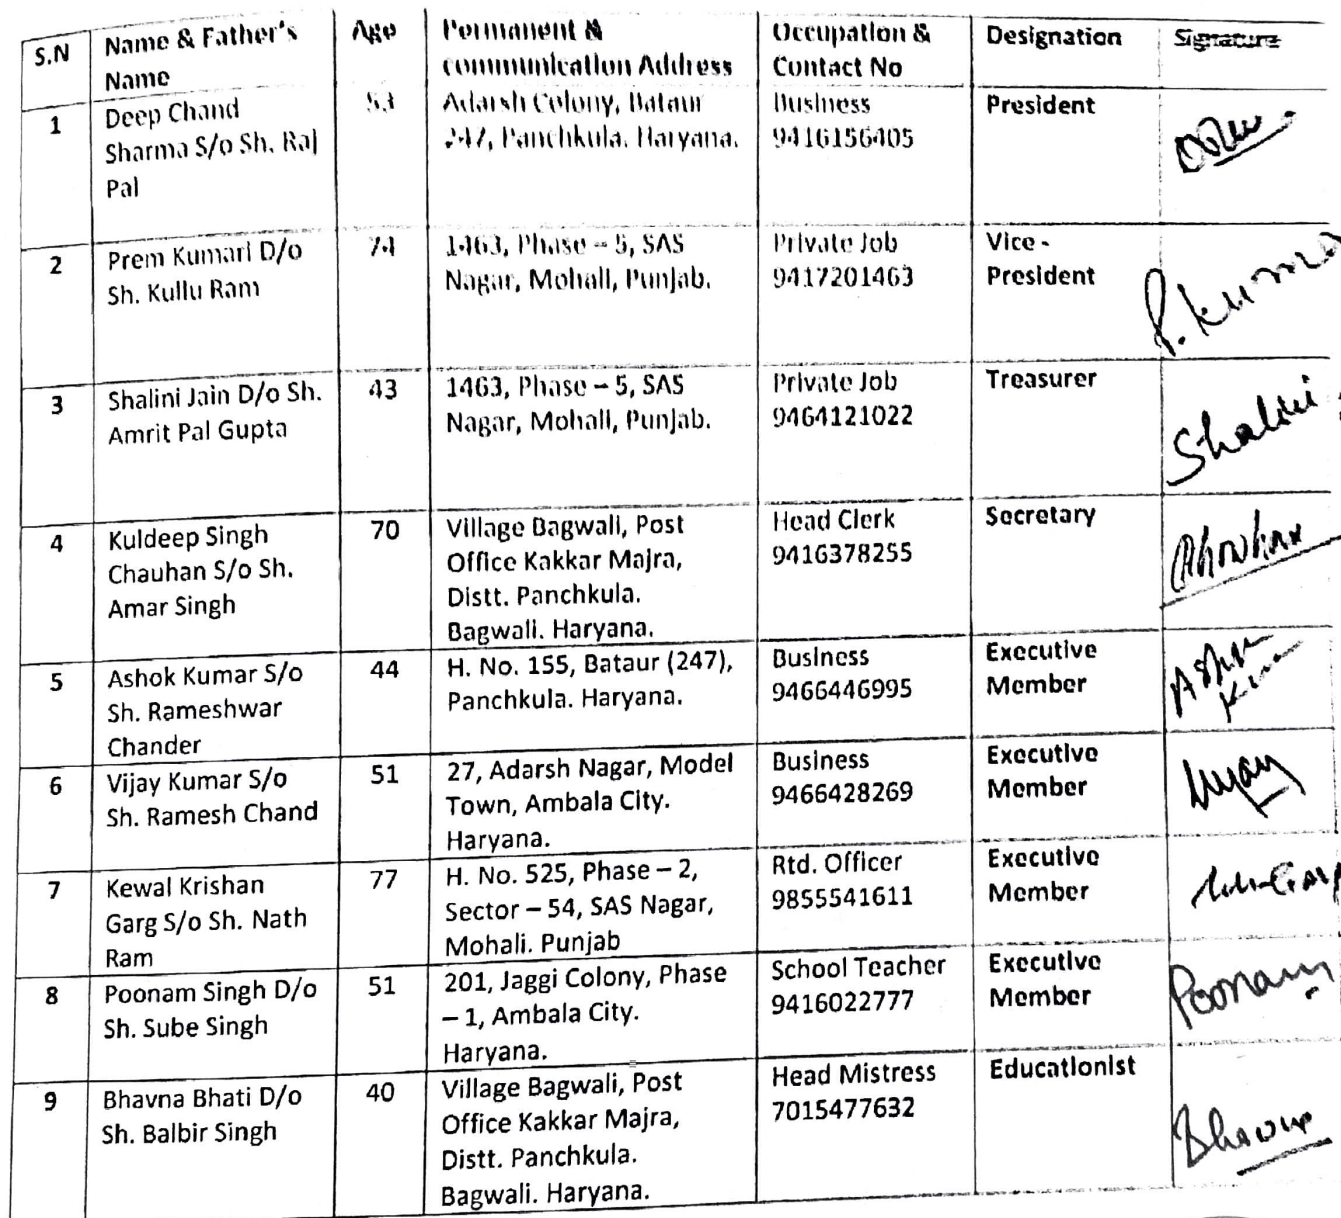 S.N Name & Father's Name Age Permanent & communication Address Occupation & Contact No Designation Signature
1 Deep Chand Sharma S/o Sh. Raj Pal 53 Adarsh Colony, Bataur 247, Panchkula. Haryana. Business 9416156405 President
2 Prem Kumari D/o Sh. Kullu Ram 74 1463, Phase – 5, SAS Nagar, Mohali, Punjab. Private Job 9417201463 Vice - President P. Kumari
3 Shalini Jain D/o Sh. Amrit Pal Gupta 43 1463, Phase – 5, SAS Nagar, Mohali, Punjab. Private Job 9464121022 Treasurer Shalini
4 Kuldeep Singh Chauhan S/o Sh. Amar Singh 70 Village Bagwali, Post Office Kakkar Majra, Distt. Panchkula. Bagwali. Haryana. Head Clerk 9416378255 Secretary
5 Ashok Kumar S/o Sh. Rameshwar Chander 44 H. No. 155, Bataur (247), Panchkula. Haryana. Business 9466446995 Executive Member
6 Vijay Kumar S/o Sh. Ramesh Chand 51 27, Adarsh Nagar, Model Town, Ambala City. Haryana. Business 9466428269 Executive Member
7 Kewal Krishan Garg S/o Sh. Nath Ram 77 H. No. 525, Phase – 2, Sector – 54, SAS Nagar, Mohali. Punjab Rtd. Officer 9855541611 Executive Member
8 Poonam Singh D/o Sh. Sube Singh 51 201, Jaggi Colony, Phase – 1, Ambala City. Haryana. School Teacher 9416022777 Executive Member Poonam
9 Bhavna Bhati D/o Sh. Balbir Singh 40 Village Bagwali, Post Office Kakkar Majra, Distt. Panchkula. Bagwali. Haryana. Head Mistress 7015477632 Educationist Bhavna